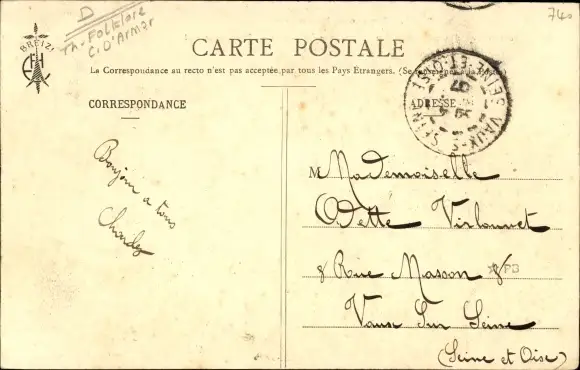 D
Th-Folklore
C. D'Armor
740
BREIZ!
CARTE POSTALE
La Correspondance au recto n'est pas acceptée par tous les Pays Étrangers. (Se renseigner à la Poste)
CORRESPONDANCE
ADRESSE
VAUX-S-SEINE
SEINE-ET-OISE
Bonjour a tous
Charles
M Mademoiselle
Odette Virlouvet
8 Rue Masson
PB
Vaux Sur Seine
(Seine et Oise)